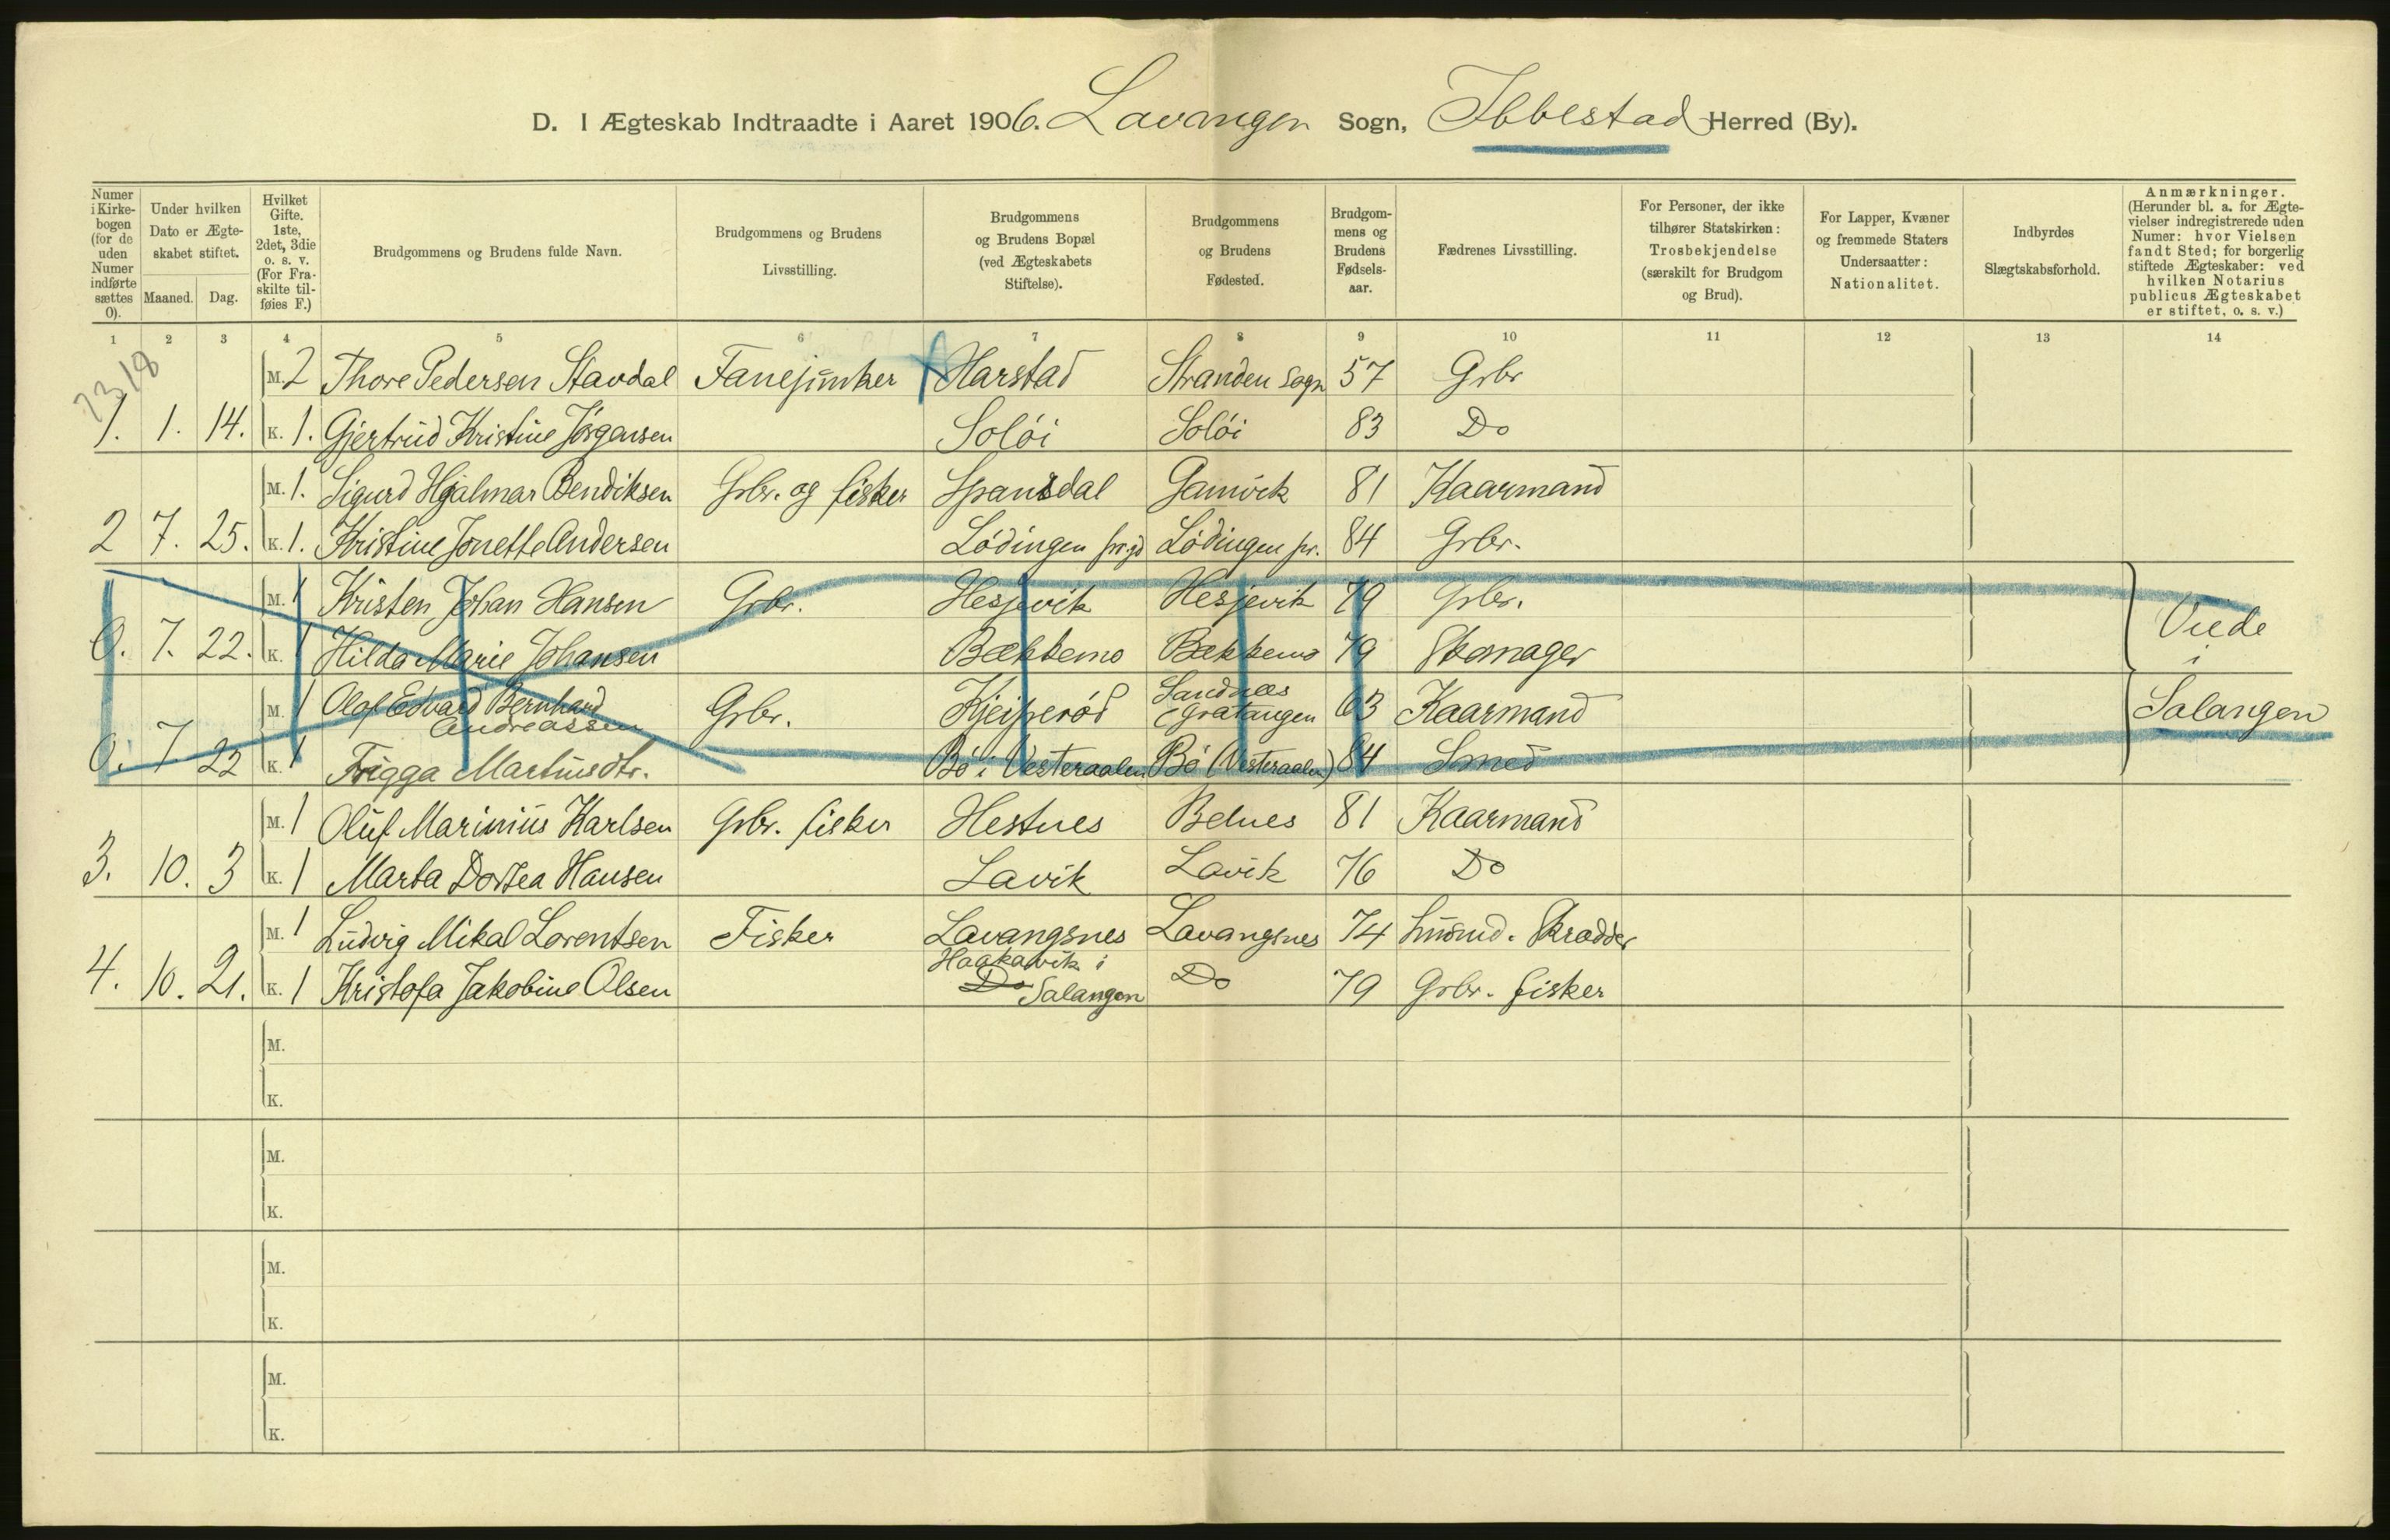 D. I Ægteskab Indtraadte i Aaret 1906. Lavangen Sogn, Ibbestad Herred (By).
Numer i Kirkebogen (for de uden Numer indførte sættes 0).
Under hvilken Dato er Ægteskabet stiftet.
Maaned. Dag.
Hvilket Gifte, 1ste, 2det, 3die o. s. v. (For Fraskilte tilføies F.)
Brudgommens og Brudens fulde Navn.
Brudgommens og Brudens Livsstilling.
Brudgommens og Brudens Bopæl (ved Ægteskabets Stiftelse).
Brudgommens og Brudens Fødested.
Brudgommens og Brudens Fødselsaar.
Fædrenes Livsstilling.
For Personer, der ikke tilhører Statskirken: Trosbekjendelse (særskilt for Brudgom og Brud).
For Lapper, Kvæner og fremmede Staters Undersaatter: Nationalitet.
Indbyrdes Slægtskabsforhold.
Anmærkninger. (Herunder bl. a. for Ægtevielser indregistrerede uden Numer: hvor Vielsen fandt Sted; for borgerlig stiftede Ægteskaber: ved hvilken Notarius publicus Ægteskabet er stiftet, o. s. v.)
1 2 3 4 5 6 7 8 9 10 11 12 13 14
M. 2 Thore Pedersen Stavdal Fanejunker Harstad Stranden Sogn 57 Grbr
1. 1. 14. K. 1. Gjertrud Kristine Jörgensen Solöi Solöi 83 Do
M. 1. Sigurd Hjalmar Bendiksen Grbr. og fisker Spansdal Gamvik 81 Kaarmand
2 7. 25. K. 1. Kristine Jonette Andersen Lödingen prgd Lödingen pr. 84 Grbr.
M. 1 Kristen Johan Hansen Grbr. Hesjevik Hesjevik 79 Grbr.
0. 7. 22. K. 1 Hilda Marie Johansen Bækkemo Bækkemo 79 Skomager
Viede
i
Salangen
M. 1 Olaf Edvard Bernhard Andreassen Grbr. Kjeiperöd Sandnæs i Gratangen 63 Kaarmand
0. 7 22 K. 1 Frigga Martinsdtr. Bö i Vesteraalen Bö (Vesteraalen) 84 Smed
M. 1 Oluf Marinius Karlsen Grbr. fisker Hestnes Belnes 81 Kaarmand
3. 10. 3 K. 1 Marta Dortea Hansen Lavik Lavik 76 Do
M. 1 Ludvig Mikal Lorentsen Fisker Lavangsnes Lavangsnes 74 husmd. Skrædder
4. 10. 21. K. 1 Kristofa Jakobine Olsen Do Haakavik i Salangen Do 79 Grbr. fisker
M.
K.
M.
K.
M.
K.
M.
K.